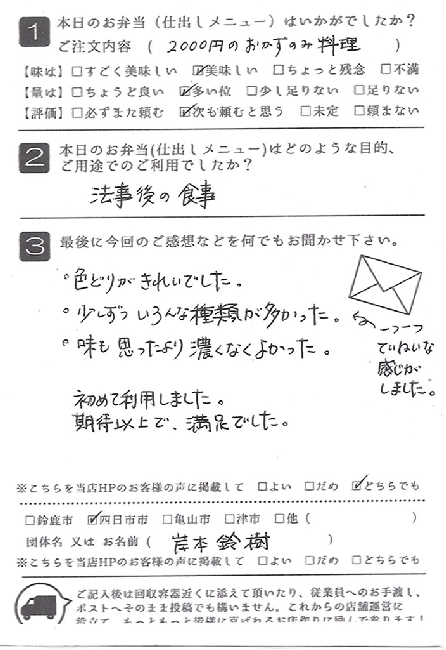 1 本日のお弁当（仕出しメニュー）はいかがでしたか？
ご注文内容（ 2000円のおかずのみ料理 ）
【味は】□すごく美味しい ☑美味しい □ちょっと残念 □不満
【量は】□ちょうど良い ☑多い位 □少し足りない □足りない
【評価】□必ずまた頼む ☑次も頼むと思う □未定 □頼まない
2 本日のお弁当(仕出しメニュー)はどのような目的、
ご用途でのご利用でしたか？
法事後の食事
3 最後に今回のご感想などを何でもお聞かせ下さい。
°色どりがきれいでした。
°少しずついろんな種類が多かった。
°味も思ったより濃くなくよかった。
一つ一つ
ていねいな
感じが
しました。
初めて利用しました。
期待以上で、満足でした。
※こちらを当店HPのお客様の声に掲載して □よい □だめ ☑どちらでも
□鈴鹿市 ☑四日市市 □亀山市 □津市 □他（ ）
団体名 又は お名前（ 岸本 鈴樹 ）
※こちらを当店HPのお客様の声に掲載して □よい □だめ □どちらでも
ご記入後は回収容器近くに添えて頂いたり、従業員へのお手渡し、
ポストへそのまま投稿でも構いません。これからの店舗運営に